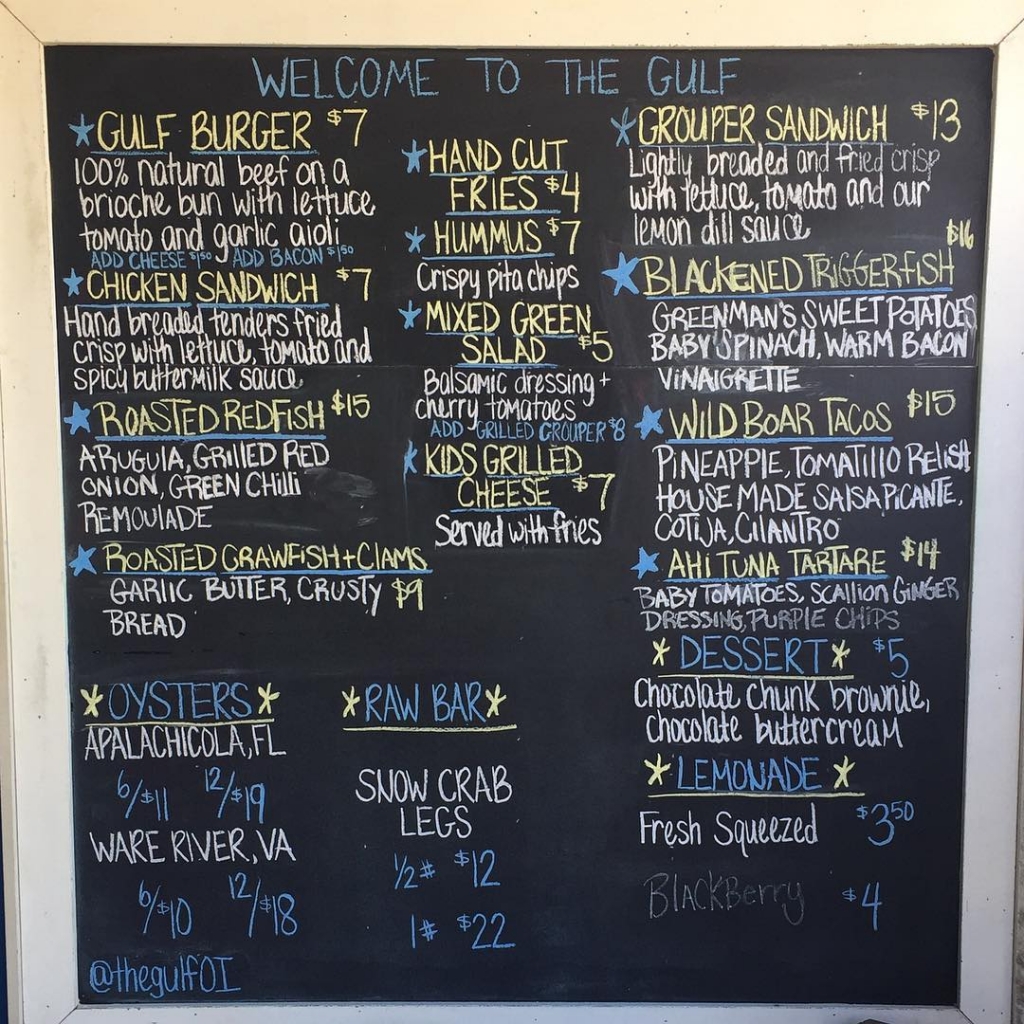 WELCOME TO THE GULF
GULF BURGER $7
100% natural beef on a
brioche bun with lettuce
tomato and garlic aioli
ADD CHEESE $1.50 ADD BACON $1.50
CHICKEN SANDWICH $7
Hand breaded tenders fried
crisp with lettuce, tomato and
spicy buttermilk sauce
ROASTED REDFISH $15
ARUGULA, GRILLED RED
ONION, GREEN CHILLI
REMOULADE
ROASTED CRAWFISH + CLAMS
GARLIC BUTTER, CRUSTY $9
BREAD
HAND CUT
FRIES $4
HUMMUS $7
Crispy pita chips
MIXED GREEN
SALAD $5
Balsamic dressing +
cherry tomatoes
ADD GRILLED GROUPER $8
KIDS GRILLED
CHEESE $7
Served with fries
GROUPER SANDWICH $13
Lightly breaded and fried crisp
with lettuce, tomato and our
lemon dill sauce
$16
BLACKENED TRIGGERFISH
GREENMAN'S SWEET POTATOES
BABY SPINACH, WARM BACON
VINAIGRETTE
WILD BOAR TACOS $15
PINEAPPLE, TOMATILLO RELISH
HOUSE MADE SALSA PICANTE,
COTIJA, CILANTRO
AHI TUNA TARTARE $14
BABY TOMATOES, SCALLION GINGER
DRESSING, PURPLE CHIPS
*DESSERT* $5
Chocolate chunk brownie,
chocolate buttercream
*LEMONADE*
Fresh Squeezed $3.50
BlackBerry $4
*OYSTERS*
APALACHICOLA, FL
6/$11 12/$19
WARE RIVER, VA
6/$10 12/$18
*RAW BAR*
SNOW CRAB
LEGS
1/2# $12
1# $22
@thegulfOI